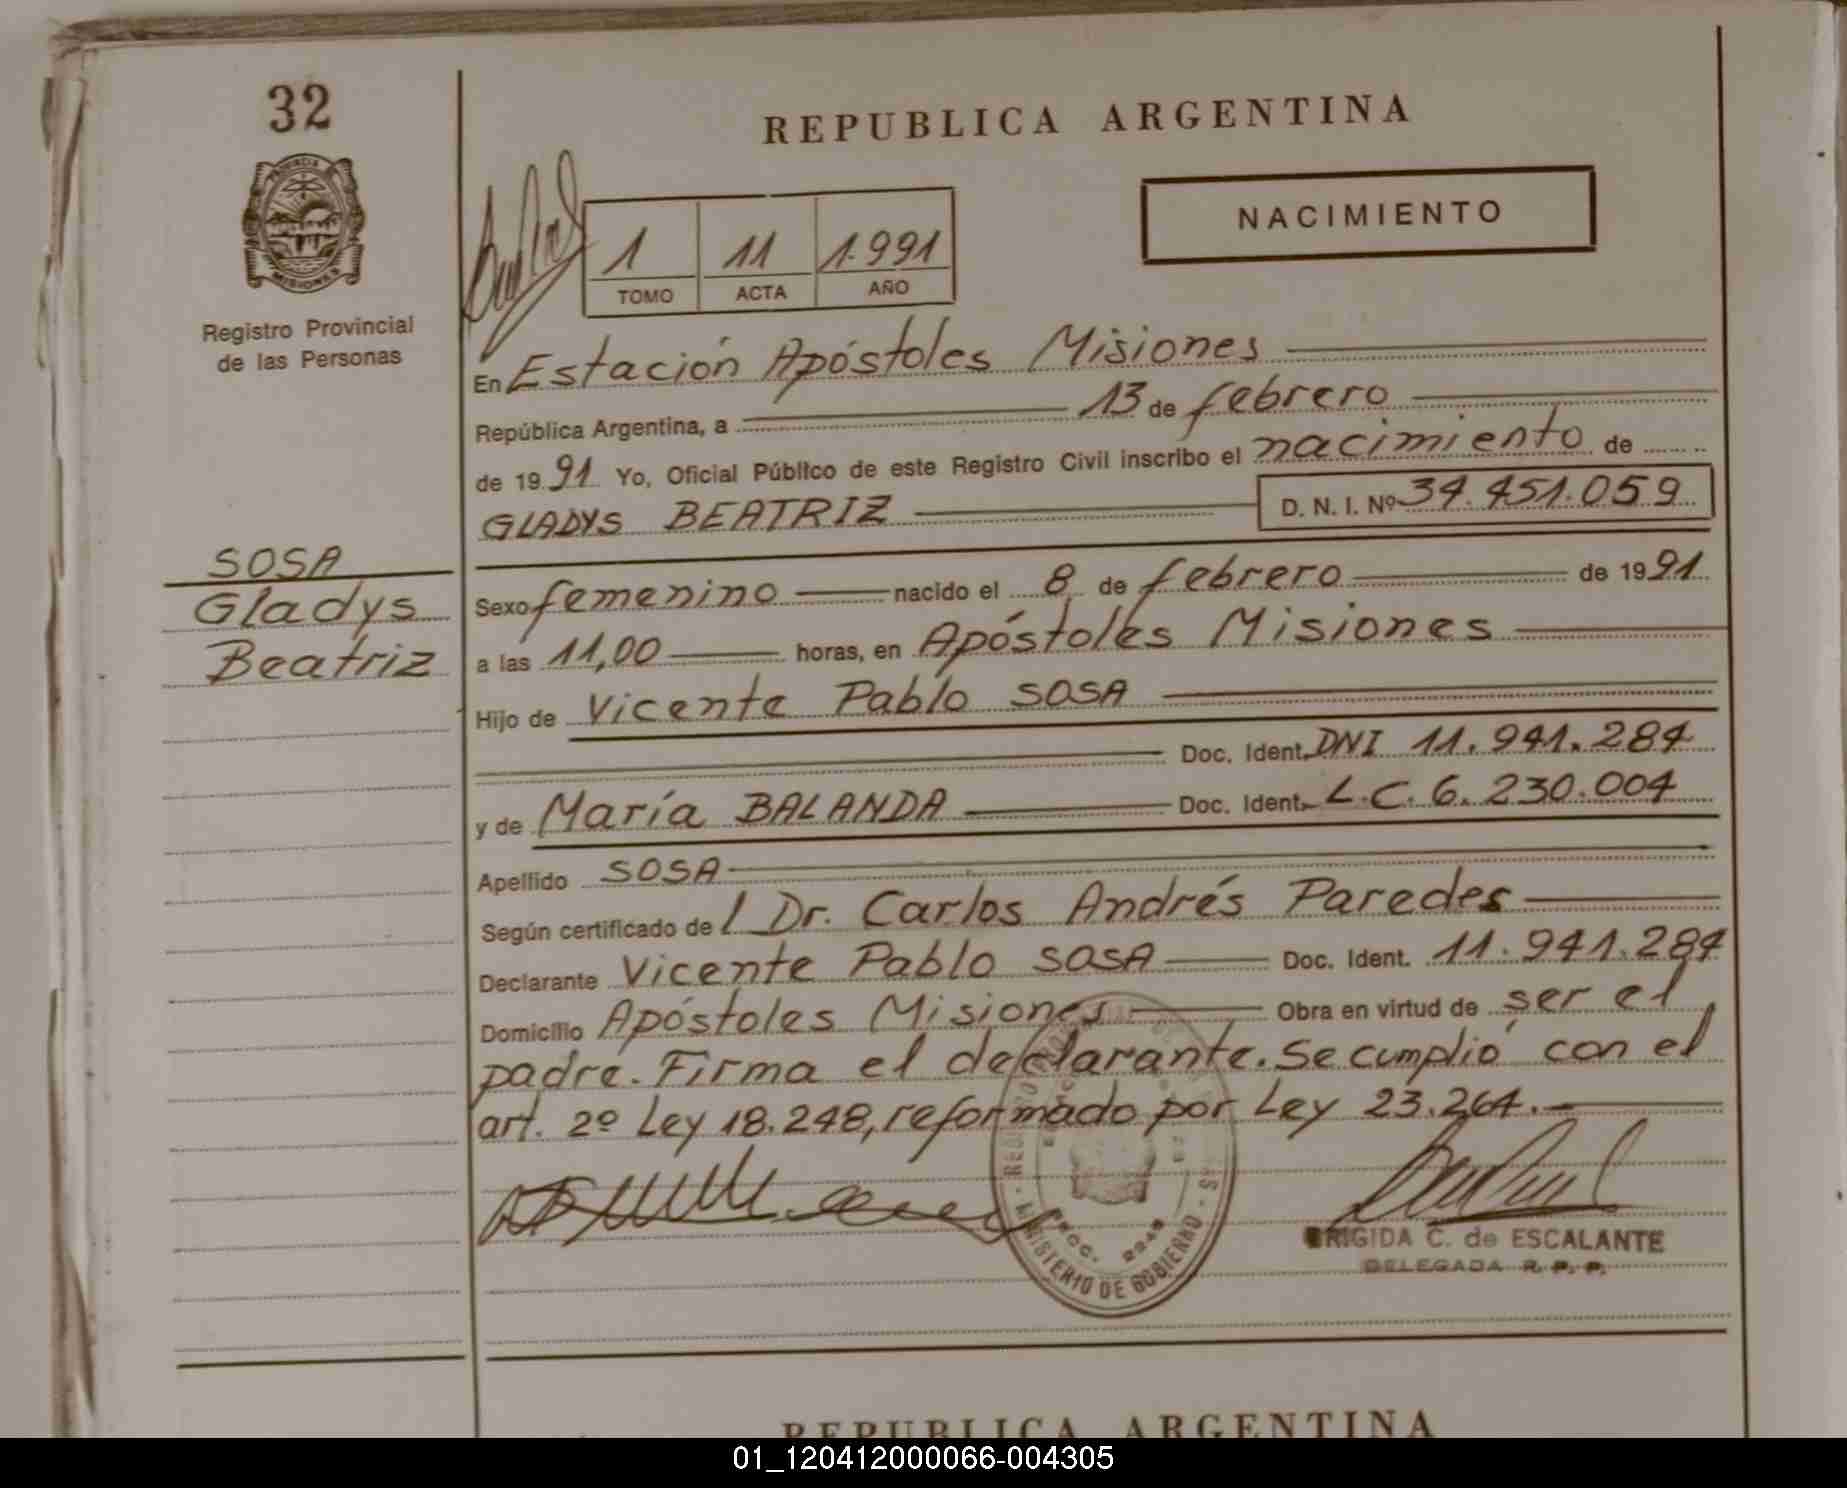 32
REPUBLICA ARGENTINA
PROVINCIA
MISIONES
NACIMIENTO
1 11 1.991
TOMO ACTA AÑO
Registro Provincial
de las Personas
En Estación Apóstoles Misiones
República Argentina, a 13 de febrero
de 1991 Yo, Oficial Público de este Registro Civil inscribo el nacimiento de
GLADYS BEATRIZ D. N. I. Nº 34.451.059
SOSA
Gladys
Beatriz
Sexo femenino nacido el 8 de febrero de 1991
a las 11,00 horas, en Apóstoles Misiones
Hijo de Vicente Pablo SOSA
Doc. Ident. DNI 11.941.284
y de María BALANDA Doc. Ident. L.C. 6.230.004
Apellido SOSA
Según certificado de l Dr. Carlos Andrés Paredes
Declarante Vicente Pablo SOSA Doc. Ident. 11.941.284
Domicilio Apóstoles Misiones Obra en virtud de ser el
padre. Firma el declarante. Se cumplió con el
art. 2º Ley 18.248, reformado por Ley 23.264.
MINISTERIO DE GOBIERNO
BRIGIDA C. de ESCALANTE
DELEGADA R. P. P.
REPUBLICA ARGENTINA
01_120412000066-004305